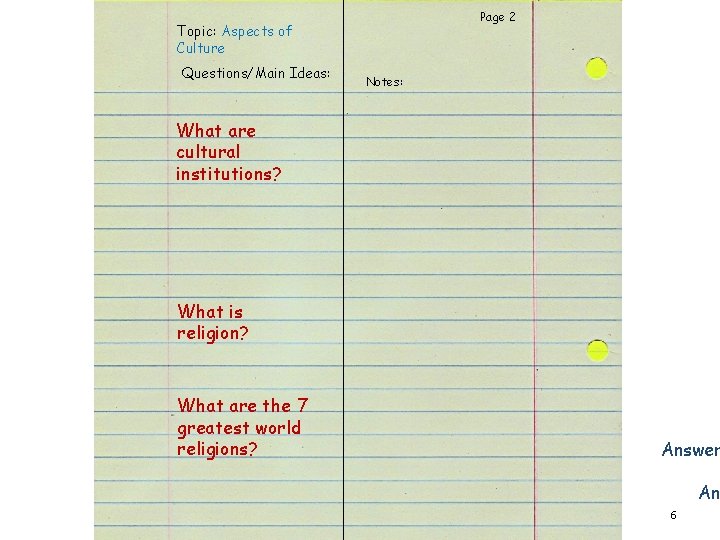 Page 2
Topic: Aspects of
Culture
Questions/Main Ideas:
Notes:
What are
cultural
institutions?
What is
religion?
What are the 7
greatest world
religions?
Answer
An
6